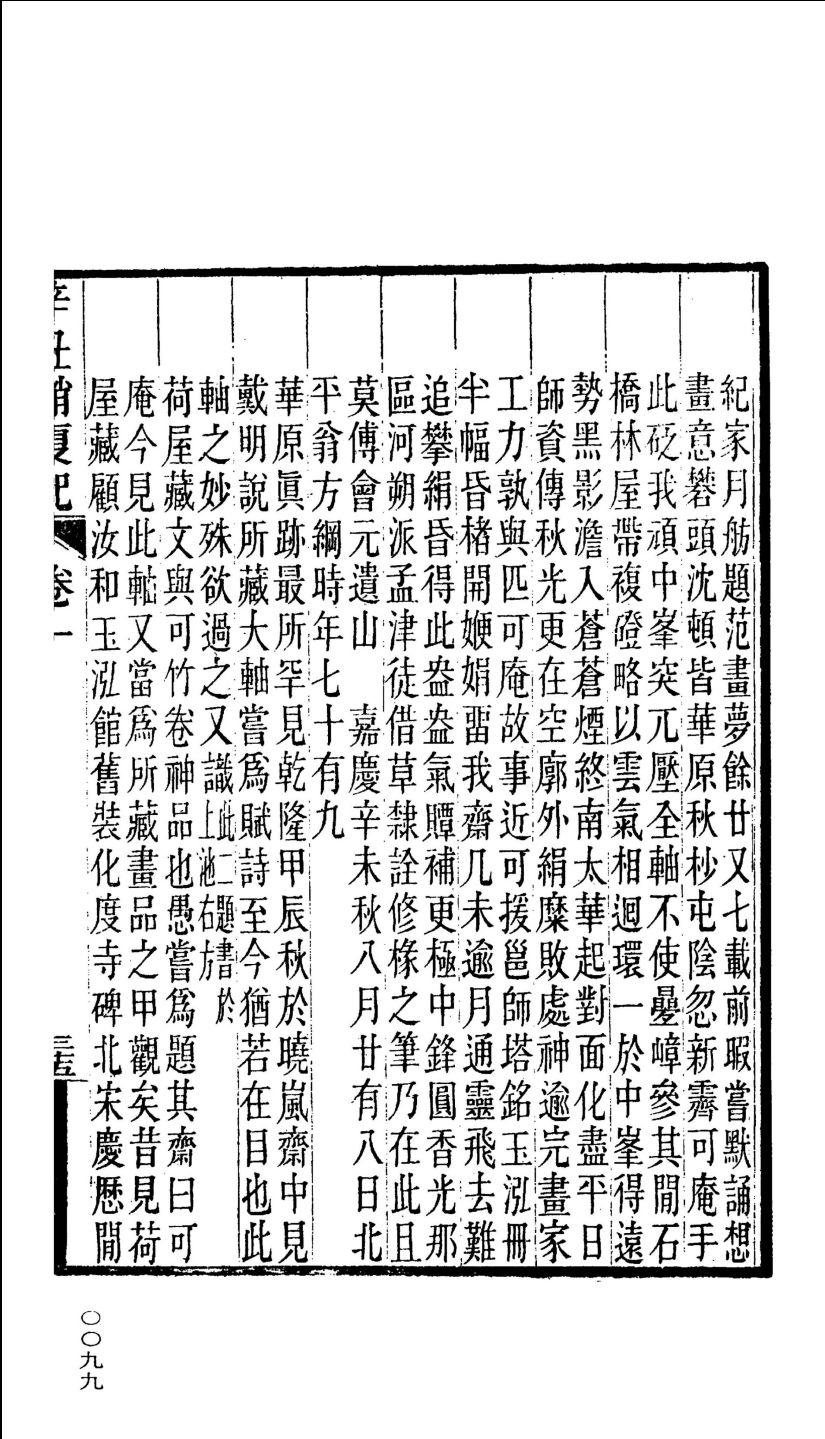 紀家月舫題范畫夢餘廿又七載前暇嘗默誦想
畫意礬頭沈頓皆華原秋杪屯陰忽新霽可庵手
此砭我頑中峯突兀壓全軸不使疊嶂參其閒石
橋林屋帶複磴略以雲氣相迴環一於中峯得遠
勢黑影澹入蒼蒼煙終南太華起對面化盡平日
師資傳秋光更在空廓外絹糜敗處神逾完畫家
工力孰與匹可庵故事近可援邕師塔銘玉泓冊
半幅昏楮開㛹娟畱我齋几未逾月通靈飛去難
追攀絹昏得此盎盎氣贉補更極中鋒圓香光那
區河朔派孟津徒借草隸詮修椽之筆乃在此且
莫傅會元遺山 嘉慶辛未秋八月廿有八日北
平翁方綱時年七十有九
華原眞跡最所罕見乾隆甲辰秋於曉嵐齋中見
戴明說所藏大軸嘗爲賦詩至今猶若在目也此
軸之妙殊欲過之又識此二題書於上池右方
荷屋藏文與可竹卷神品也愚嘗爲題其齋曰可
庵今見此軸又當爲所藏畫品之甲觀矣昔見荷
屋藏顧汝和玉泓館舊裝化度寺碑北宋慶厯閒
辛丑銷夏記 卷一 三五
〇〇九九